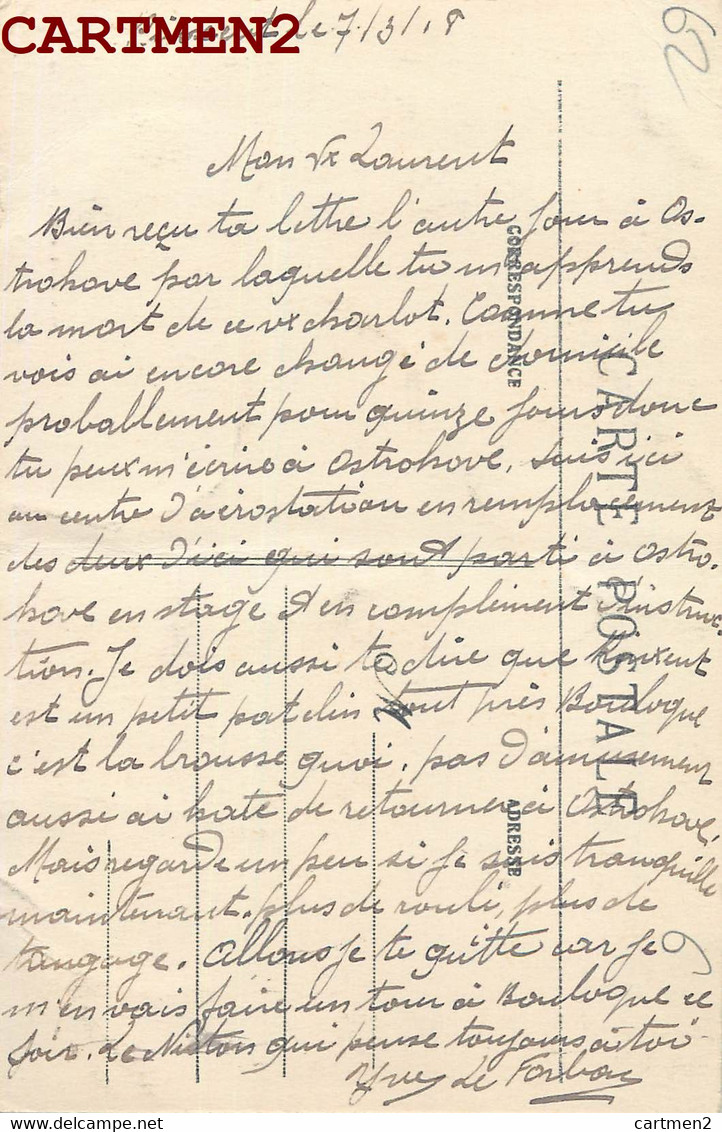 CARTMEN2
le 7/3/18
62
Mon Vx Laurent
Bien reçu ta lettre l'autre jour à Os-
trohove par laquelle tu m'apprends
la mort de ce vx charlot. Comme tu
vois ai encore changé de domicile
probablement pour quinze jours donc
tu peux m'écrire à Ostrohove. Suis ici
au centre d'aérostation en remplacement
des deux d'ici qui sont parti à Ostro-
hove en stage et en complément d'instruc-
tion. Je dois aussi te dire que Rinxent
est un petit patelin tout près Boulogne
c'est la brousse quoi. pas d'amusement
aussi ai hate de retourner à Ostrohove.
Mais regarde un peu si je suis tranquille
maintenant. plus de rouli, plus de
tangage. Allons je te quitte car je
m'en vais faire un tour à Boulogne ce
soir. Le qui pense toujours à toi
Yves Le
CORRESPONDANCE
CARTE POSTALE
ADRESSE
6
cartmen2